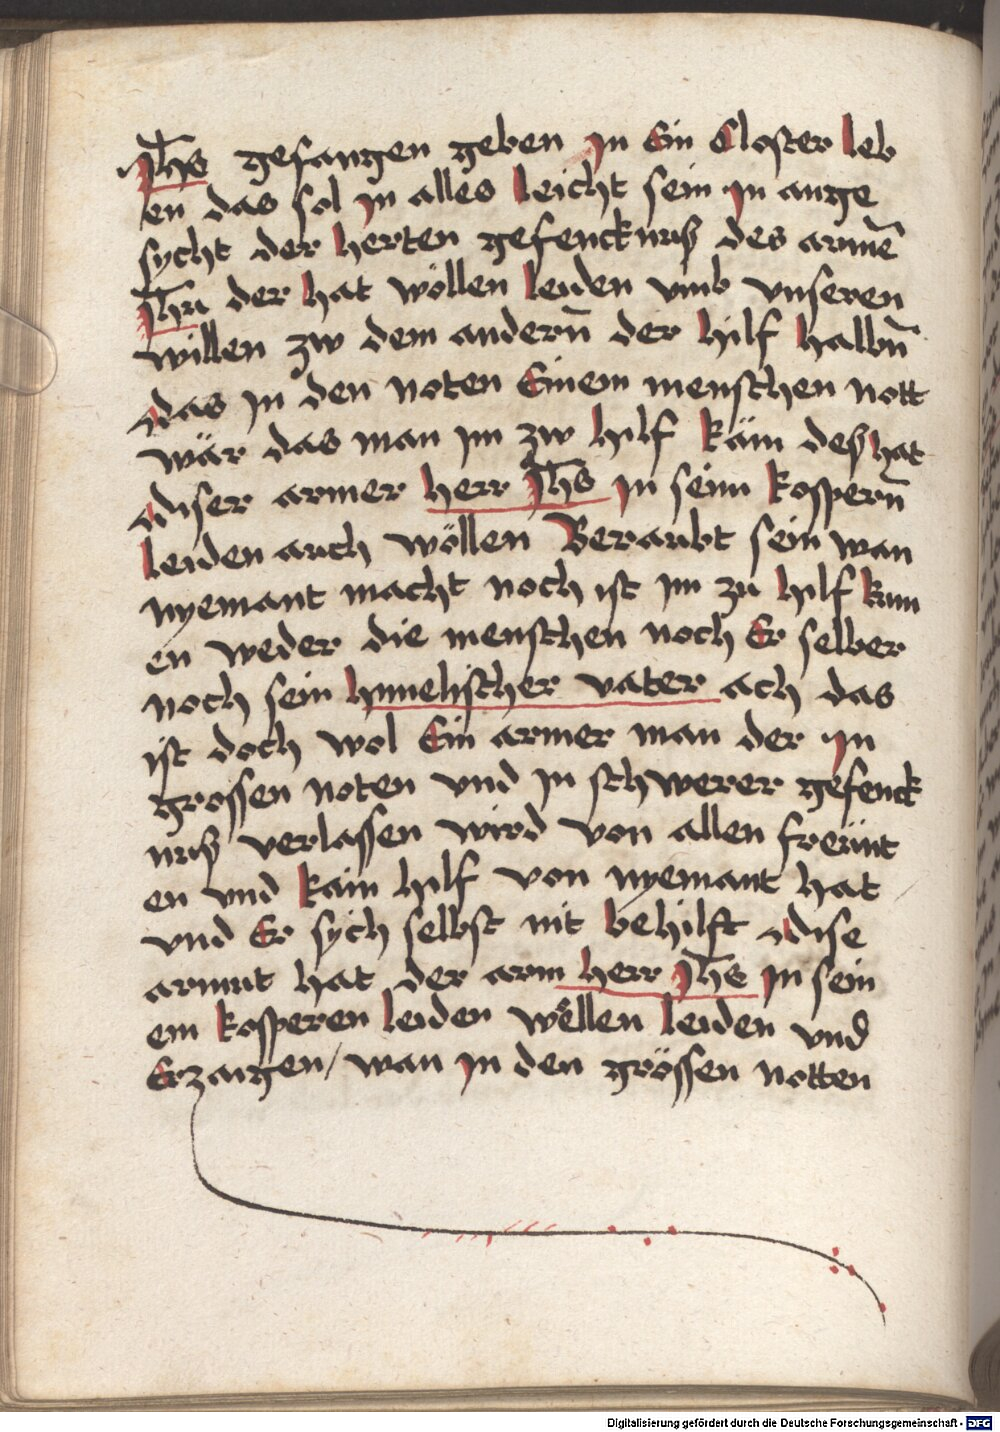 Jhs gefangen geben in Ein Closter leb
en das sol in alles leicht sein in ange
sycht der herten gefencknuß des armē
Jhu der hat wöllen leiden vmb vnseren
willen zw dem andern̄ der hilf halbn̄
das in den noten Einem menschen nott
wär das man im zw hilf käm deß hat
diser armer herr Jhs in seim kospern̄
leiden auch wöllen Beraubt sein wan
nyemant macht noch ist im zu hilf kum
en weder die menschen noch Er selber
noch sein himelischer vater ach das
ist doch wol Ein armer man der in
grossen noten vnd in schwerer gefenck
nuß verlassen wird von allen freünt
en vnd kain hilf von nyemant hat
vnd Er sych selbst nit behilft dise
armut hat der arm herr Jhs in sein
em kosperen leiden wellen leiden vnd
Erzaigen / wan in den grössen notten
Digitalisierung gefördert durch die Deutsche Forschungsgemeinschaft - DFG